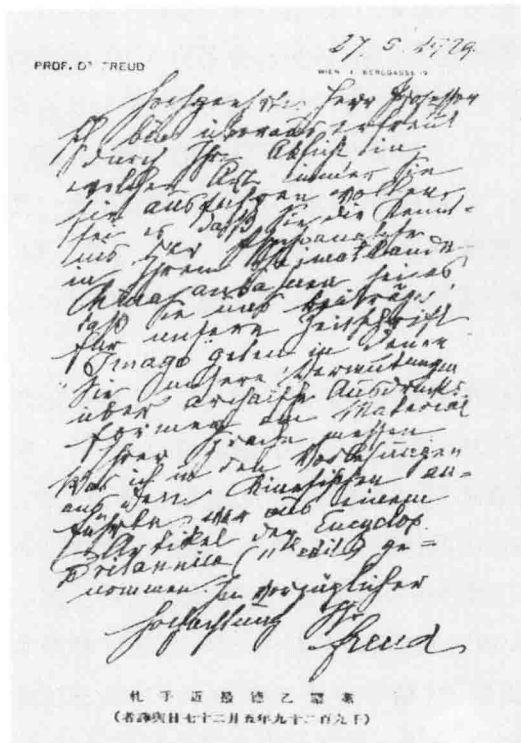 27. 5. 1929
PROF. DR. FREUD
WIEN, IX. BERGGASSE 19
Hochgeehrter Herr Professor
Ich bin überaus erfreut
durch Ihre Absicht in
welcher Art immer Sie
sie ausführen wollen,
sei es daß Sie die Kennt-
nis der Psychoanalyse
in Ihrem Heimatlande
China anbahnen, sei es,
daß Sie uns Beiträge
für unsere Zeitschrift
"Imago" geben in denen
Sie unsere Vermutungen
über archaische Ausdrucks-
formen am Material
Ihrer Sprache messen
Was ich in den Vorlesungen
aus dem Chinesischen an-
führte, war aus einem
Artikel der Encyclop.
Britannica (11th edit) ge=
nommen. In vorzüglicher
Hochachtung Ihr
Freud
茀羅乙德最近手札
(千九百二十九年五月二十七日與譯者)